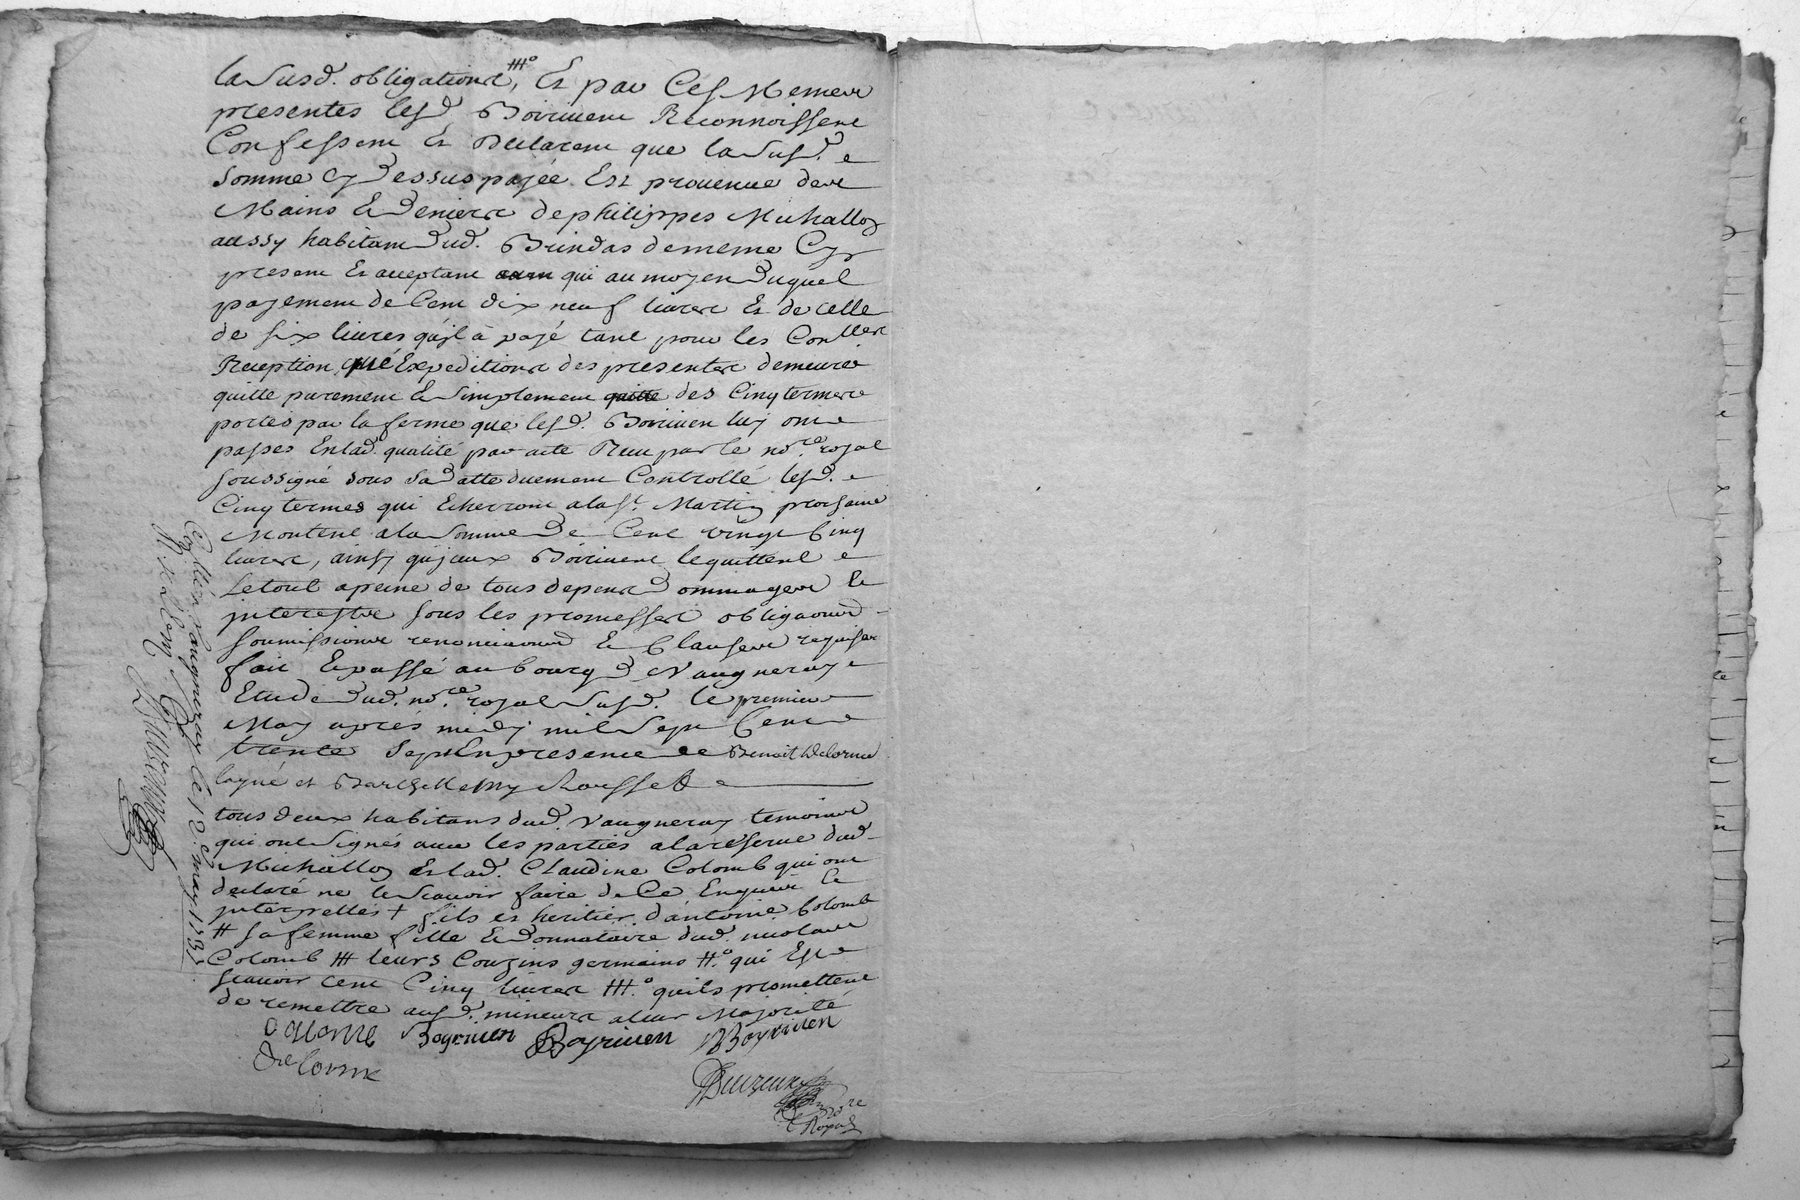 la Susd. obligation, Et par Ces Memes
presentes lesd. Boirivent Reconnoissent
Confessent Et Declarent que la Susd.
Somme Cy Dessus payée Est provenue des
Mains & Deniers de philippes Muhallon
aussy habitant dud. Brindas de meme Cy
present Et acceptant qui au moyen Duquel
payement de Cent dix neuf livres Et de celle
de six livres qu'jl à payé tant pour les Conlles
Reception, que Expeditions des presentes demeure
quitte purement & Simplement quitte des Cinq termes
portés par la ferme que lesd. Boirivent luy ont
passés En lad. qualité par acte Reçu par le nore. royal
soussigné sous sa Datte duement Controllé lesd.
Cinq termes qui Echerront a la St. Martin prochaine
Montent a la Somme De Cent vingt Cinq
livres, ainsy qu'jceux Boirivent le quittent
Le tout a peine de tous depens Dommages &
jnterestre sous les promesses obligaons
soumissions renonciaons & Clauses requises
fait & passé au bourg de Vaugneray
Etude dud. nore. royal Susd. le premier
May aprés midy mil Sept Cent
trente Sept En presence de Benoit Delorme
layné et Barthellemy Rousset
tous deux habitans dud. Vaugneray temoins
qui ont Signés avec les parties a la reserve dud.
Muhallon Et lad. Claudine Colomb qui ont
declaré ne le Scavoir faire de Ce Enquis &
jnterpellés + fils et heritier d'antoine Colomb
# sa femme fille & Donnataire dud. nicolas
Colomb ### leurs Couzins germains ##. qui Est
scavoir cent Cinq livres ###. quils promettent
de remettre ausd. mineurs a leur Majorité
Delorme Boyriven Boyriven Boyriven
Delorme
nore
Royal
Collé à Vaugneray le 12e. may 1737